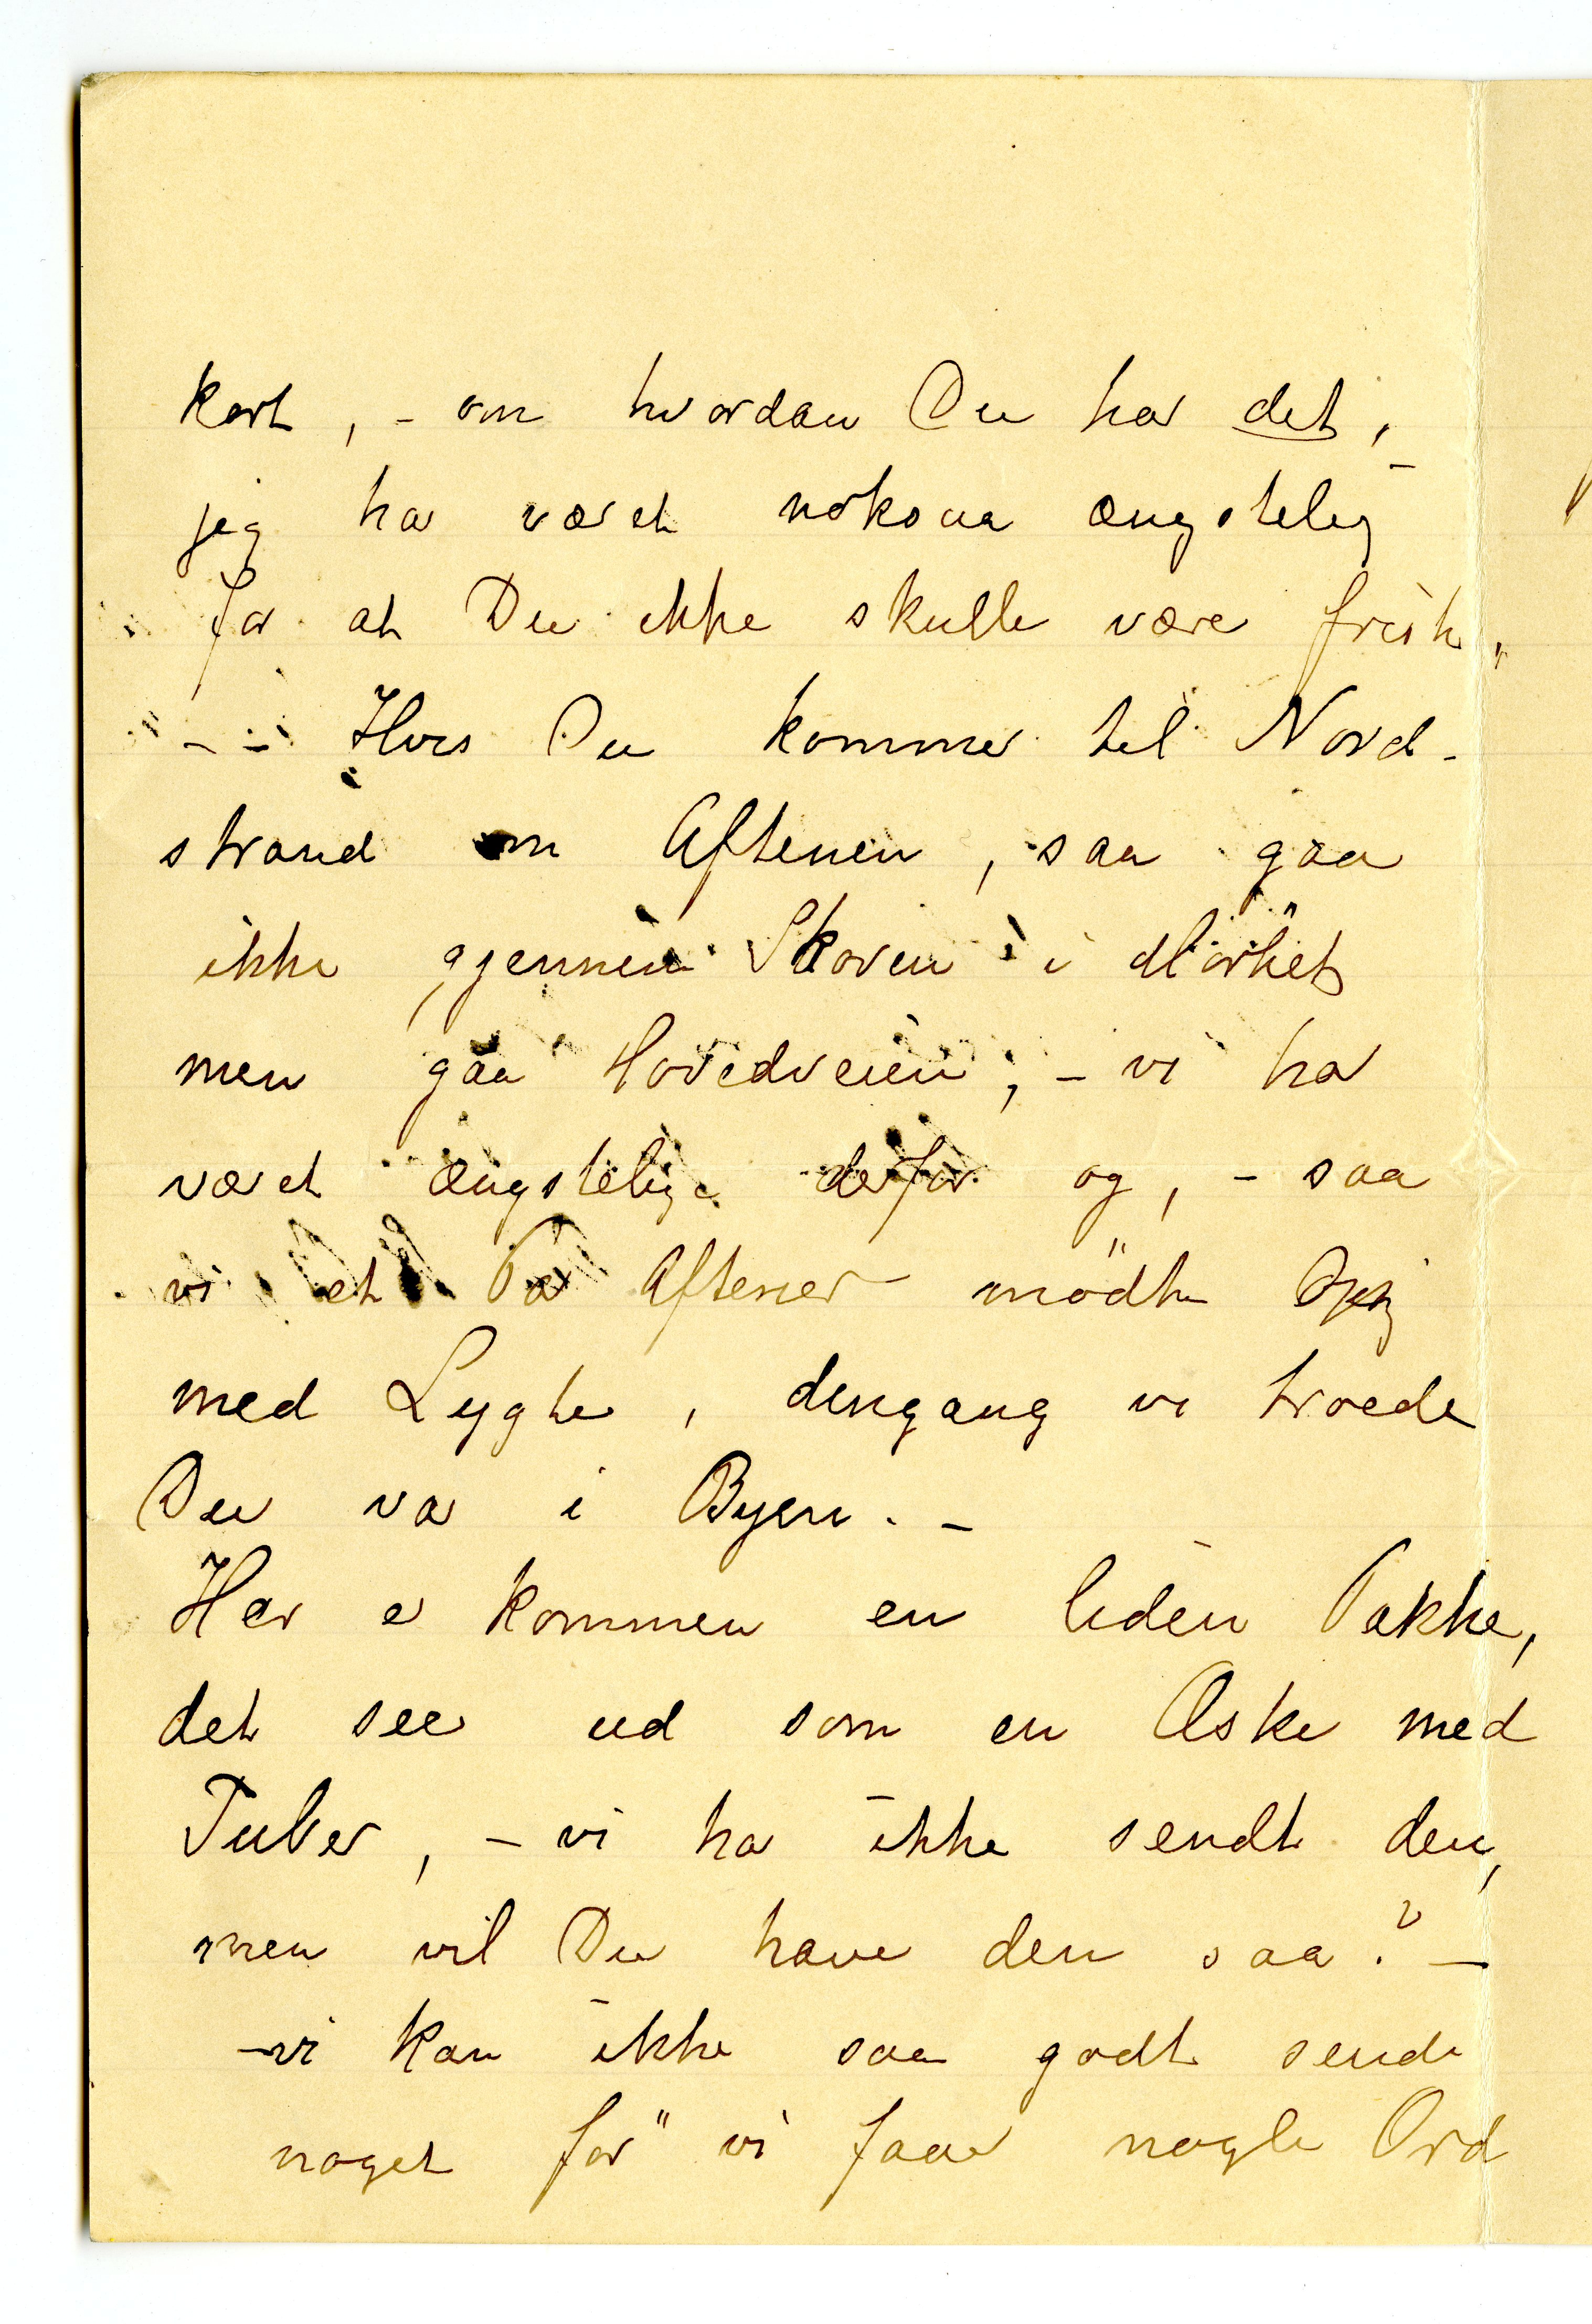 kort, – om hvordan Du har det, –
jeg har været noksaa ængstelig
for at Du ikke skulle være frisk,
– – Hvis Du kommer til Nord-
strand om Aftenen, saa gaa
ikke gjennem Skoven i Mörket
men gaa Hovedveien, – vi har
været ængstelige derfor og, – saa
vi et Par Aftener mödte Dig
med Lygte, dengang vi troede
Du var i Byen. –
Her er kommen en liden Pakke,
det seer ud som en Æske med
Tuber, – vi har ikke sendt den,
men vil Du have den saa? –
– vi kan ikke saa godt sende
noget för vi faar nogle Ord